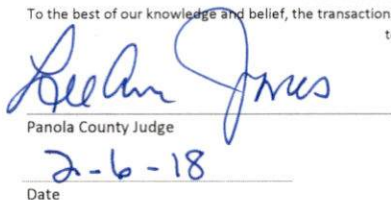 To the best of our knowledge and belief, the transaction
t
LeeAnn Jones
Panola County Judge
2-6-18
Date